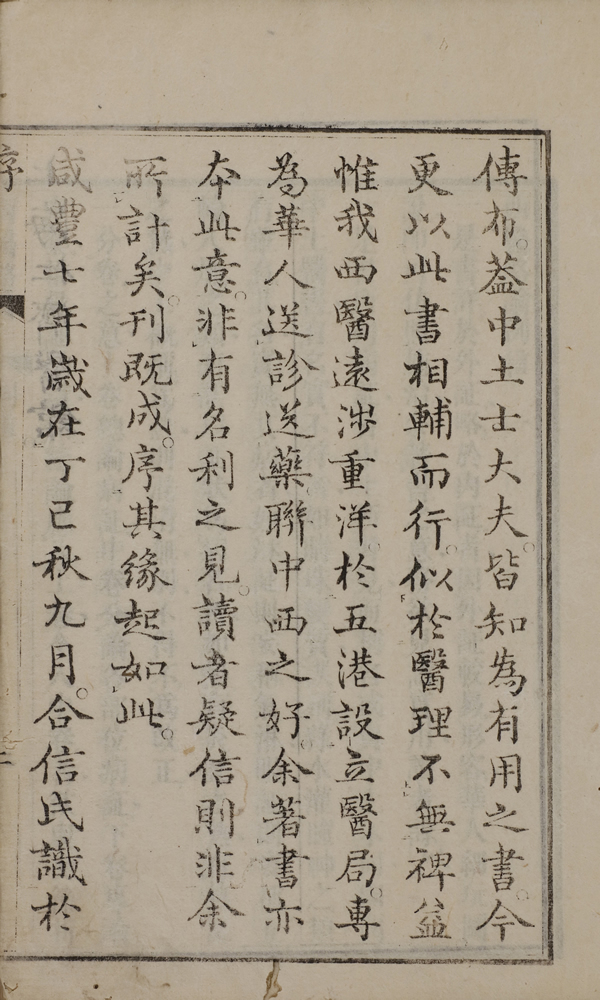 傳布。葢中土士大夫。皆知為有用之書。今
更以此書相輔而行。似於醫理不無裨益
惟我西醫遠涉重洋。於五港設立醫局。專
為華人送診送藥聯中西之好。余著書亦
本此意。非有名利之見。讀者疑信則非余
所計矣。刊既成。序其緣起如此。
咸豐七年歲在丁巳秋九月。合信氏識於
序